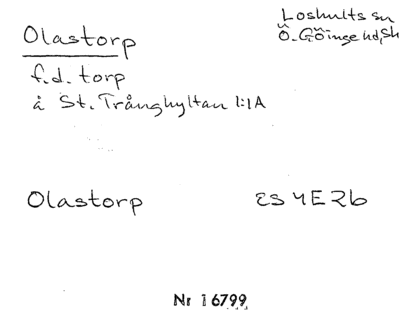 Olastorp
Loshults sn
Ö. Göinge hd, Sk
f.d. torp
å St. Trånghyltan 1:1A
Olastorp
ES 4E2b
Nr 16799